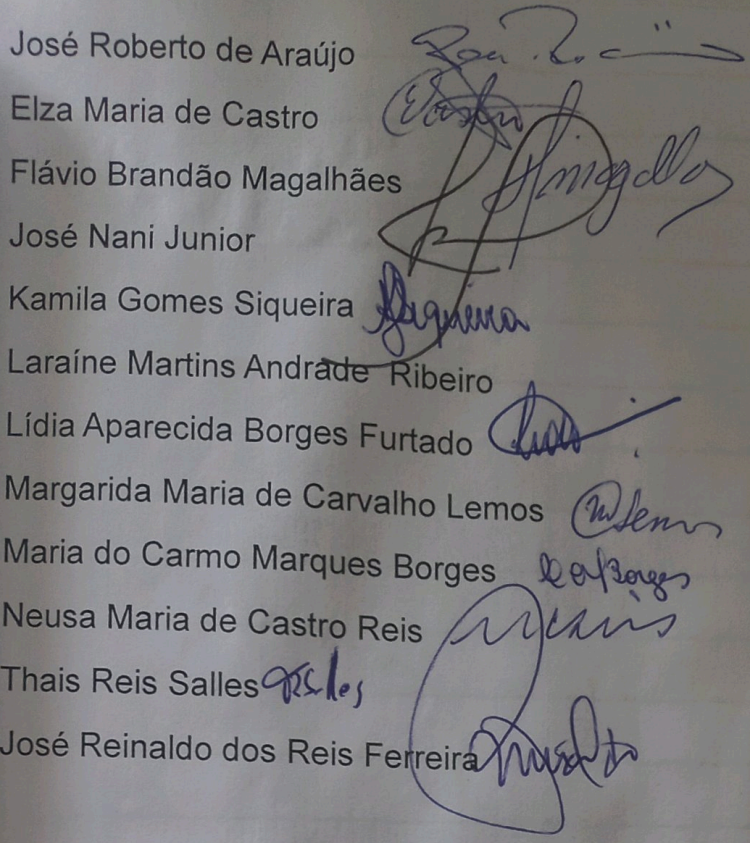 José Roberto de Araújo
Elza Maria de Castro
Flávio Brandão Magalhães
José Nani Junior
Kamila Gomes Siqueira Siqueira
Laraíne Martins Andrade Ribeiro
Lídia Aparecida Borges Furtado
Margarida Maria de Carvalho Lemos
Maria do Carmo Marques Borges
Neusa Maria de Castro Reis
Thais Reis Salles
José Reinaldo dos Reis Ferreira